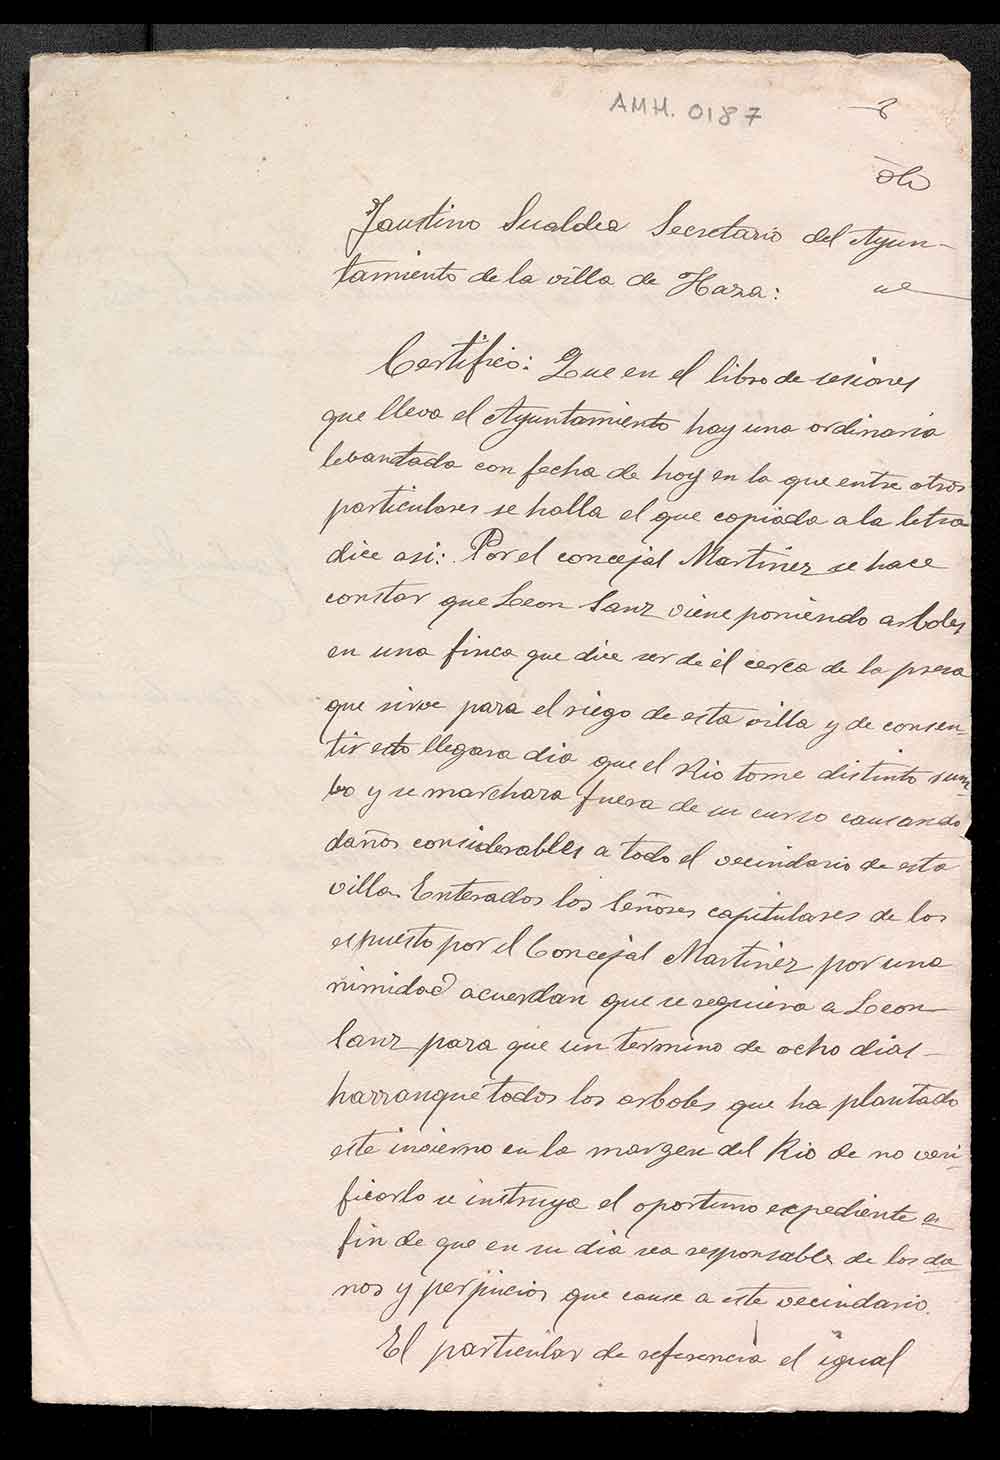 AMH. 0187
Faustino Sualdea Secretario del Ayun-
tamiento de la villa de Haza:
Certifico: Que en el libro de sesiones
que lleva el Ayuntamiento hay una ordinaria
levantada con fecha de hoy en la que entre otros
particulares se halla el que copiada a la letra
dice asi: Por el concejal Martinez se hace
constar que Leon Sanz viene poniendo arboles
en una finca que dice ser de él cerca de la presa
que sirve para el riego de esta villa y de consen-
tir esto llegara dia que el Rio tome distinto rum-
bo y se marchara fuera de su curso causando
daños considerables a todo el vecindario de esta
villa. Enterados los Señores capitulares de los
espuesto por el Concejal Martinez por una
nimidad acuerdan que se requiera a Leon
Sanz para que un termino de ocho dias
harranque todos los arboles que ha plantado
este invierno en la margen del Rio de no veri-
ficarlo se instruya el oportuno expediente a
fin de que en su dia sea responsable de los da
nos y perjuicios que cause a este vecindario.
El particular de referencia el igual